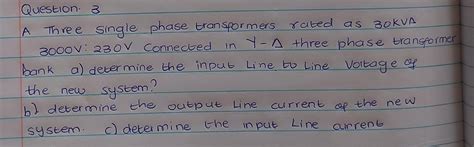 Question. 3
A Three single phase transformers rated as 30KVA
3000V: 230V Connected in Y-Δ three phase transformer
bank a) determine the input Line to Line Voltage of
the new system?
b) determine the output Line current of the new
system. c) determine the input Line current